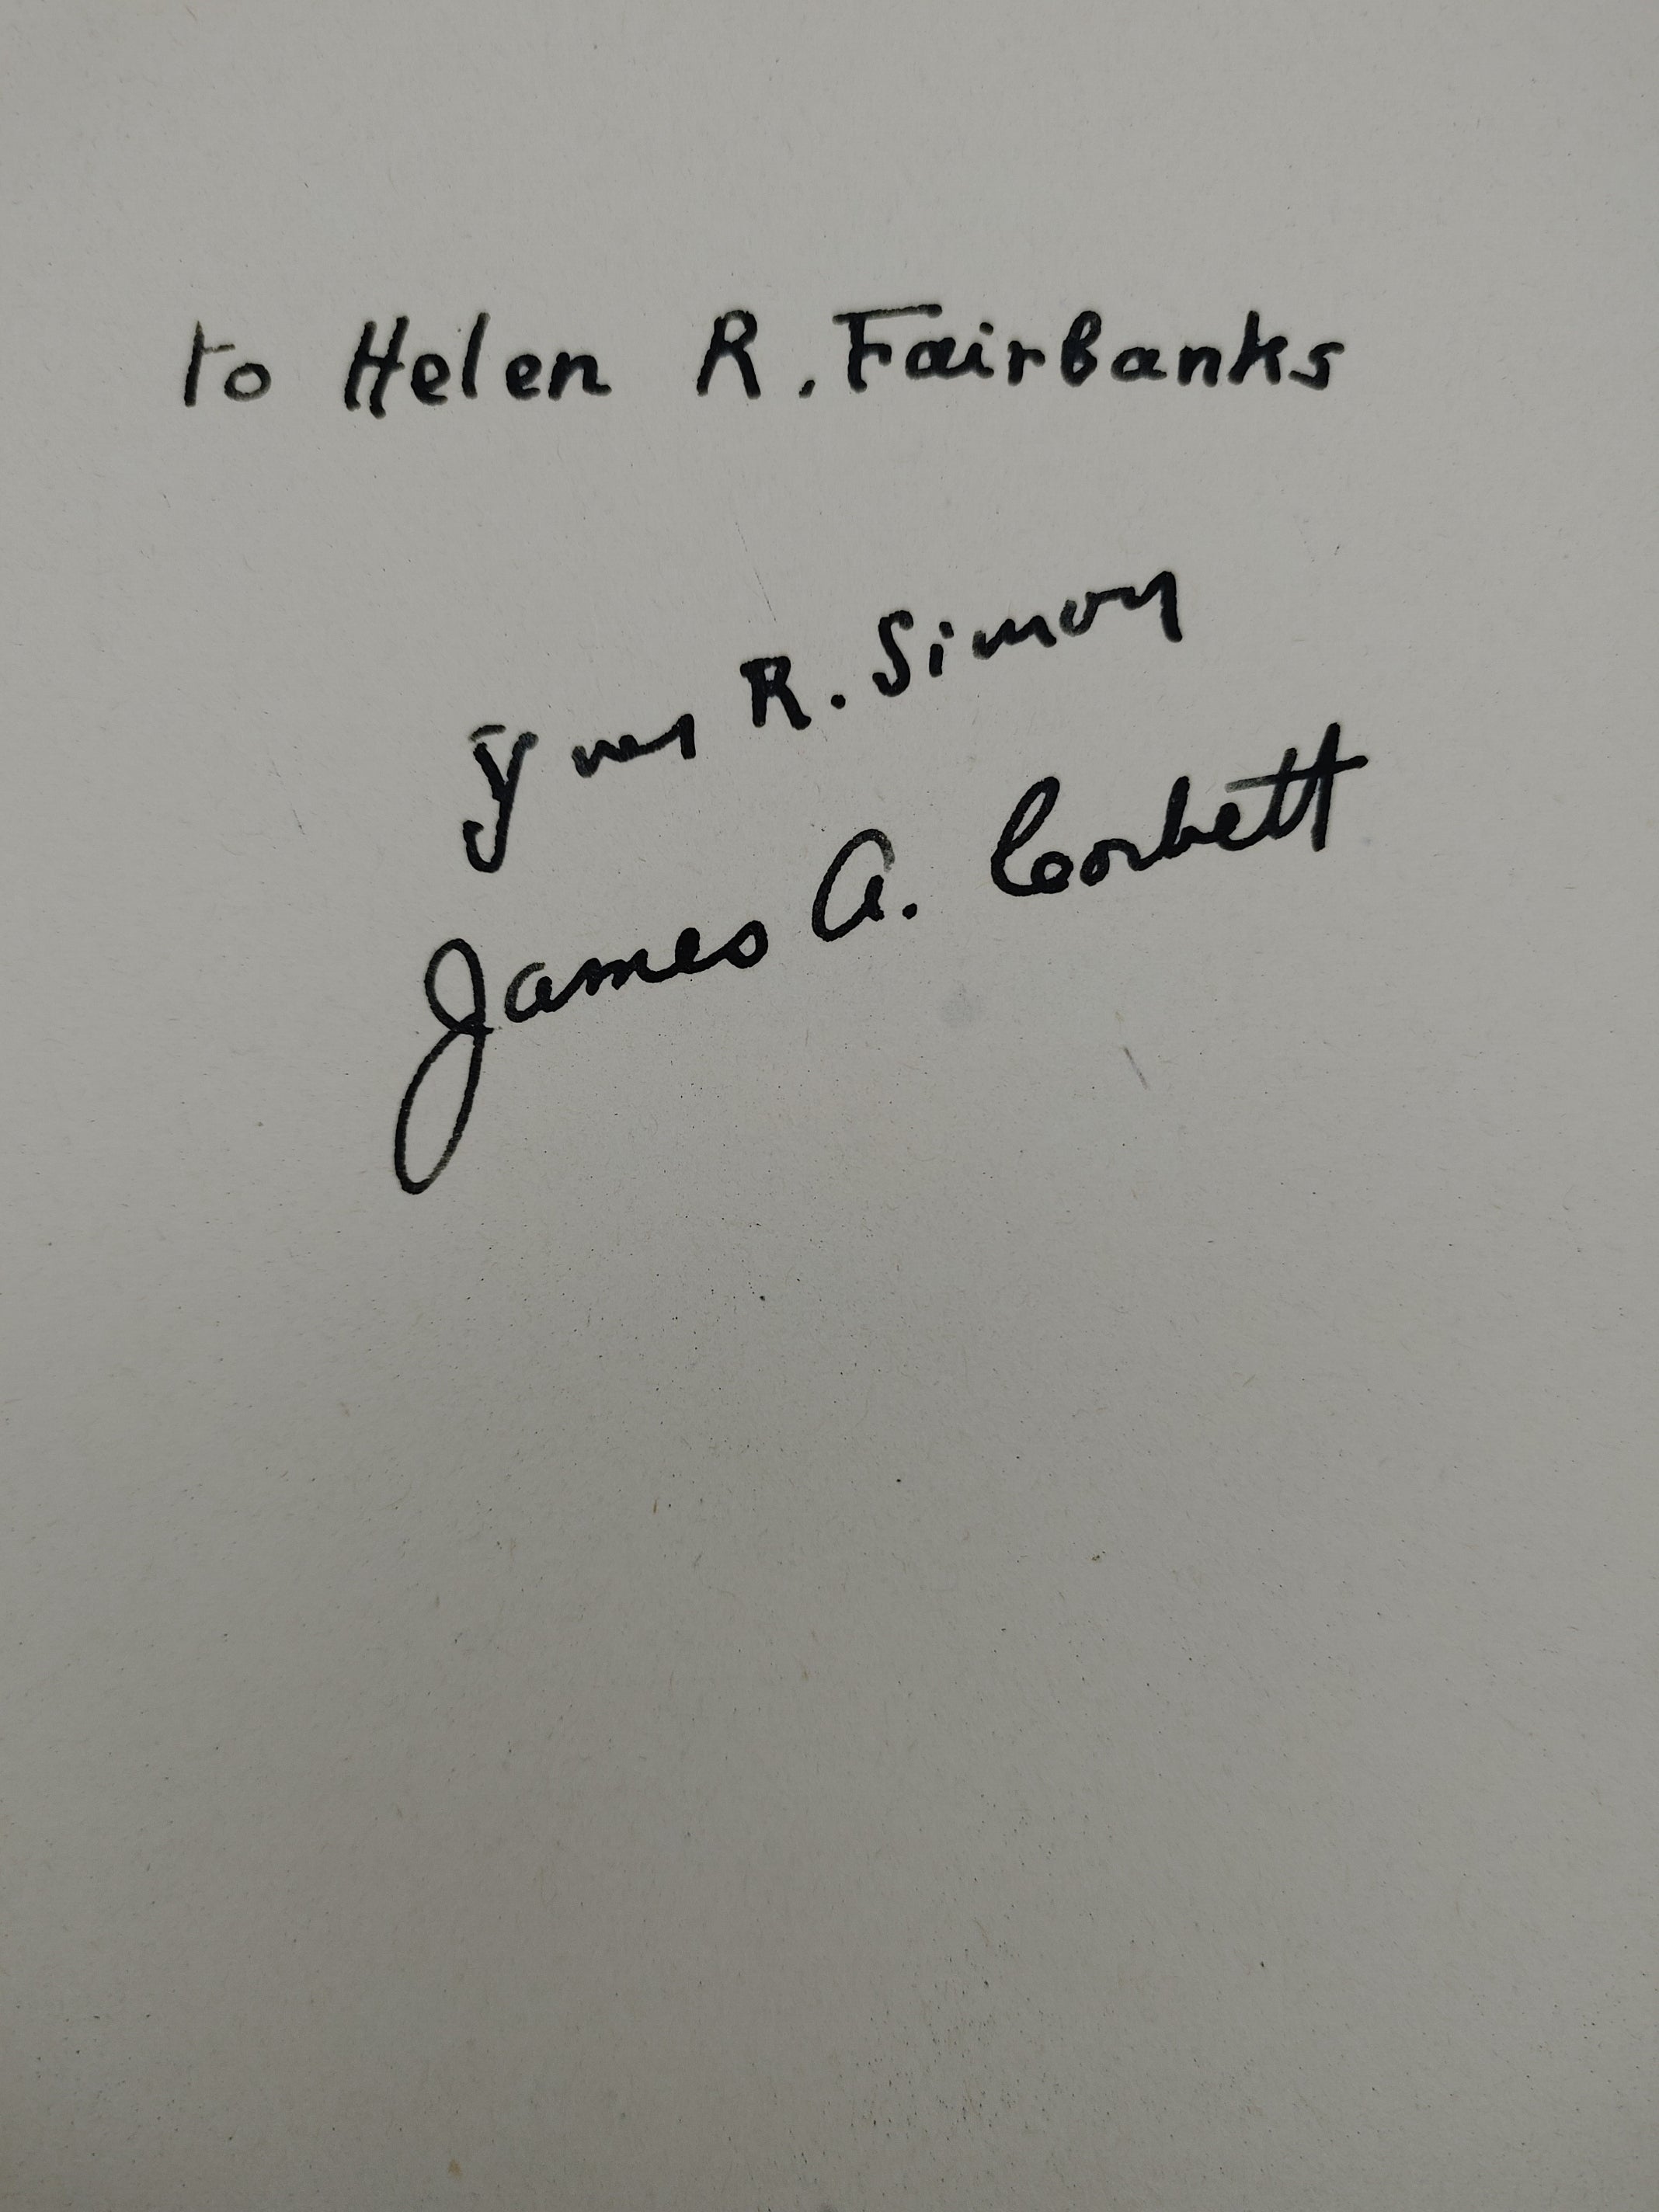 to Helen R. Fairbanks
Yves R. Simon
James A. Corbett